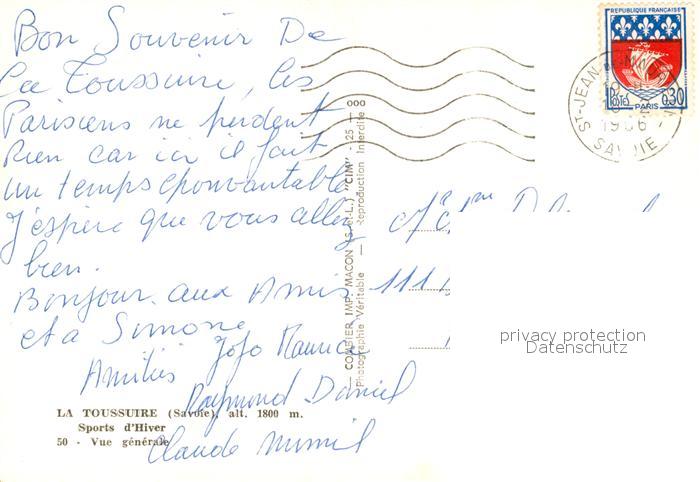 Bon Souvenir De
La Toussuire, les
Parisiens ne perdent
Rien car ici il fait
un temps épouvantable
J'espère que vous allez
bien.
Bonjour aux Amis
et a Simone
Amitiés Jojo Maurice
Raymond Daniel
Claude
LA TOUSSUIRE (Savoie), alt. 1800 m.
Sports d'Hiver
50 - Vue générale
COMBIER IMP. MACON (S.-et-L.) "CIM" - 25 - 000
Photographie Véritable — Reproduction Interdite
REPUBLIQUE FRANÇAISE
POSTES 0,30
PARIS
ST-JEAN
1966
SAVOIE
111
privacy protection
Datenschutz